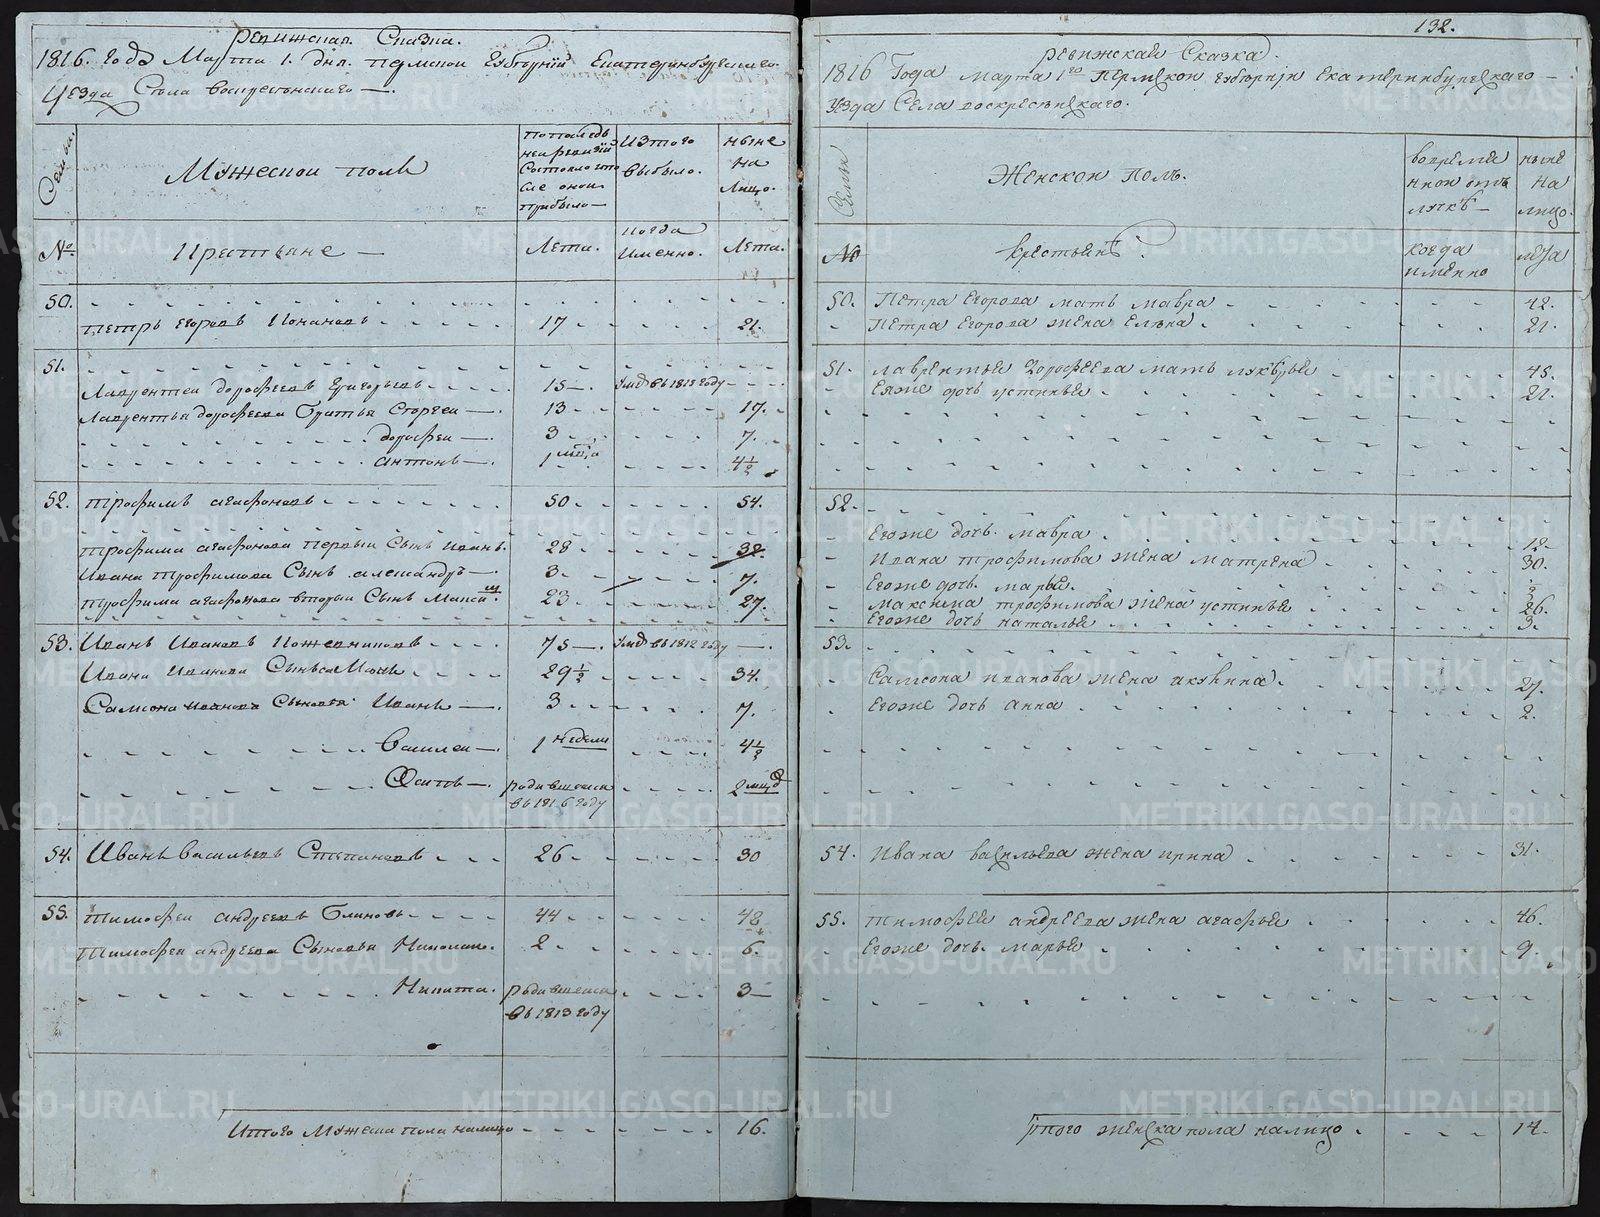 Ревижская Сказка.
1816. года Марта 1. дня. пермской Губернии Екатеринбургскаго
Уезда Села воскресенскаго —.
Семьи.
Мужеской полъ
по последней ревизии состояло и после оной прибыло —
Изъ того выбыло.
ныне на лицо.
№
Крестьяне —
Лета.
когда именно.
Лета.
50.
петръ егоровъ Конановъ 17 21.
51.
Лаврентей дорофеевъ Григорьевъ 15 —. умре въ 1813 году —
Лаврентья дорофеева братья Сергеи —. 13 17.
дорофеи —. 3 7.
антонъ —. 1 мца 4½
52. трофимъ агафоновъ 50 54.
трофима агафонова первыи Сынъ иванъ. 28 32.
Ивана трофимова Сынъ александръ —. 3. 7.
трофима агафонова вторыи Сынъ Максим. 23 27.
53. Иванъ Ивановъ Кожевниковъ 75 —. умре въ 1812 году —.
Ивана Иванова Сынъ 29½ 34.
Самсона Иванова Сыновья Иванъ —. 3 7.
Василеи —. 1 недели 4½
Осипъ —. родившеися въ 1816 году 2 мца
54. Иванъ васильевъ Степановъ 26 30
55. тимофеи андреевъ блиновъ 44 48
тимофея андреева Сыновья Николаи. 2 6.
Никита. родившеися въ 1813 году 3 —
Итого Мужеска пола налицо 16.
132.
ревижская Сказка.
1816 Года марта 1го пермской губернии екатеринбургскаго —
уезда Села воскресенскаго.
Семьи
Женской полъ.
во временной отлучкѣ —
ныне на лицо.
№
крестьянъ.
когда именно
лета
50. Петра Егорова мать мавра 42.
Петра Егорова жена Елена 21.
51. лаврентья дорофеева мать лукерья 45.
Ея же дочь устинья 21.
52.
Его же дочь мавра 12.
Ивана трофимова жена матрена 30.
Его же дочь марья. ½
максима трофимова жена устинья 26.
Его же дочь наталья 3.
53.
Самсона иванова жена акулина 27.
Его же дочь анна 2.
54. Ивана васильева жена ирина 31.
55. тимофея андреева жена агафья 46.
Его же дочь марья 9.
итого женска пола налицо 14.
METRIKI.GASO-URAL.RU